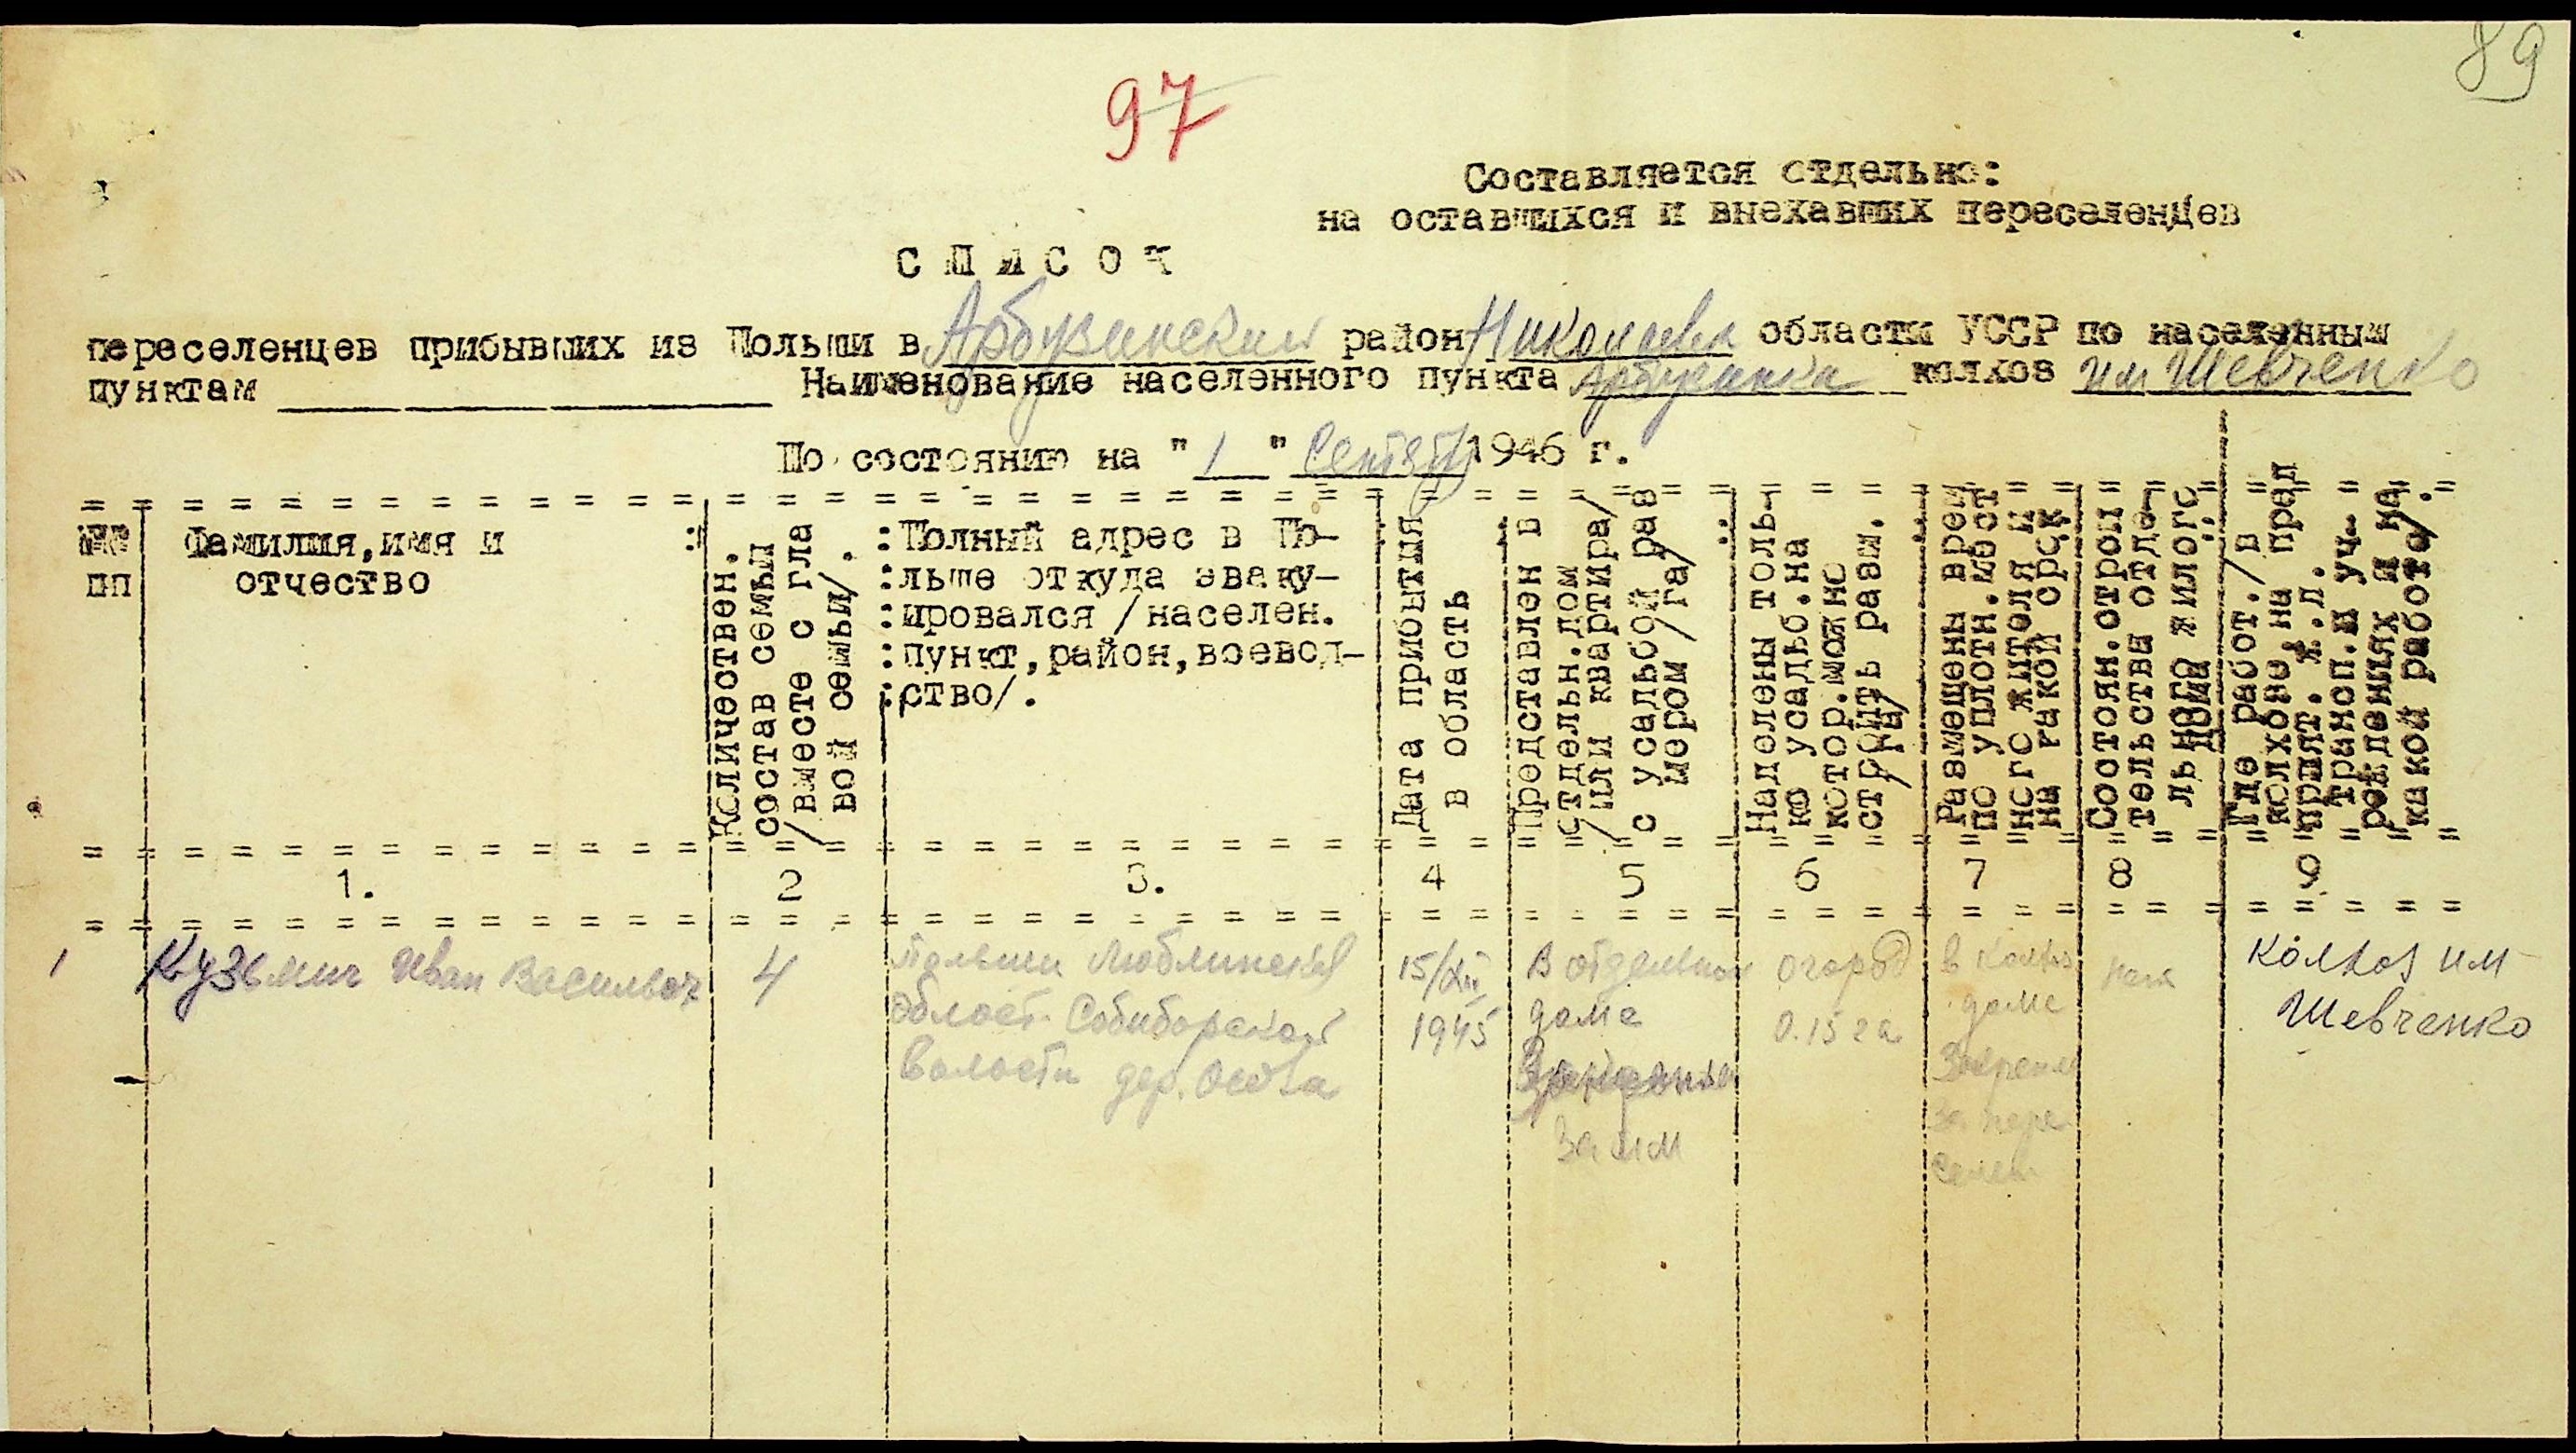 89
97
Составляется отдельно:
на оставшихся и внехавших переселенцев
С П И С О К
переселенцев прибывших из Польши в Арбузинский район Николаевск области УССР по населенным
пунктам Наименование населенного пункта Арбузинка колхоз им Шевченко
По состоянию на " 1 " Сентяб 1946 г.
№№
пп
Фамилия, имя и
отчество
Количествен.
состав семьи
/вместе с гла
вой семьи/.
:Полный адрес в По-
:льше откуда эваку-
:ировался /населен.
:пункт, район, воевод-
:ство/.
Дата прибытия
в область
Представлен в
отдельн. дом
/или квартира/
с усадьбой раз
мером /га/
Наделены толь-
ко усадьб. на
котор. можно
строить разм.
/га/
Размещены врем
по уплотн. мест
ного жителя и
на какой срок
Состоян. строи
тельства отде-
льного жилого
дома
Где работ. /в
колхозе, на пред
прият. ж.д.
трансп. и уч-
реждениях и на
какой работе/.
1. 2 3. 4 5 6 7 8 9
1 Кузьмич Иван Васильевич 4
Польши Люблинской
област. Собиборской
Волости дер. Осова
15/XII
1945
В отдельном
доме
за им
огород
0.15 га
в колхоз
доме
Закрепл
за пере
селен
Колхоз им
Шевченко